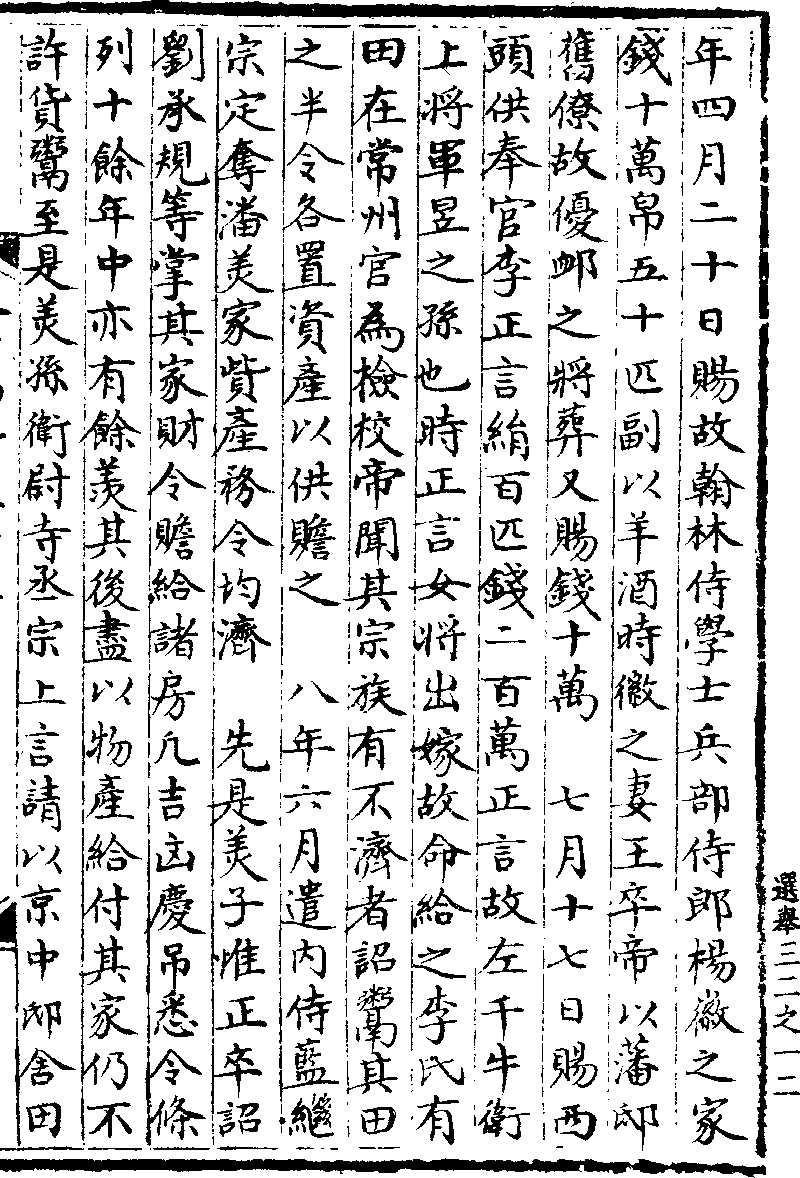 年四月二十日賜故翰林侍學士兵部侍郎楊徽之家
錢十萬帛五十匹副以羊酒時徽之妻王卒帝以藩邸
舊僚故優卹之將葬又賜錢十萬　七月十七日賜西
頭供奉官李正言絹百匹錢二百萬正言故左千牛衛
上將軍昱之孫也時正言女將出嫁故命給之李氏有
田在常州官為檢校帝聞其宗族有不濟者詔鬻其田
之半令各置資產以供贍之　八年六月遣內侍藍繼
宗定奪潘美家貲產務令均濟　先是美子惟正卒詔
劉承規等掌其家財令贍給諸房凡吉凶慶吊悉令條
列十餘年中亦有餘羨其後盡以物產給付其家仍不
許貨鬻至是美孫衛尉寺丞宗上言請以京中邸舍田
選舉三二之一二